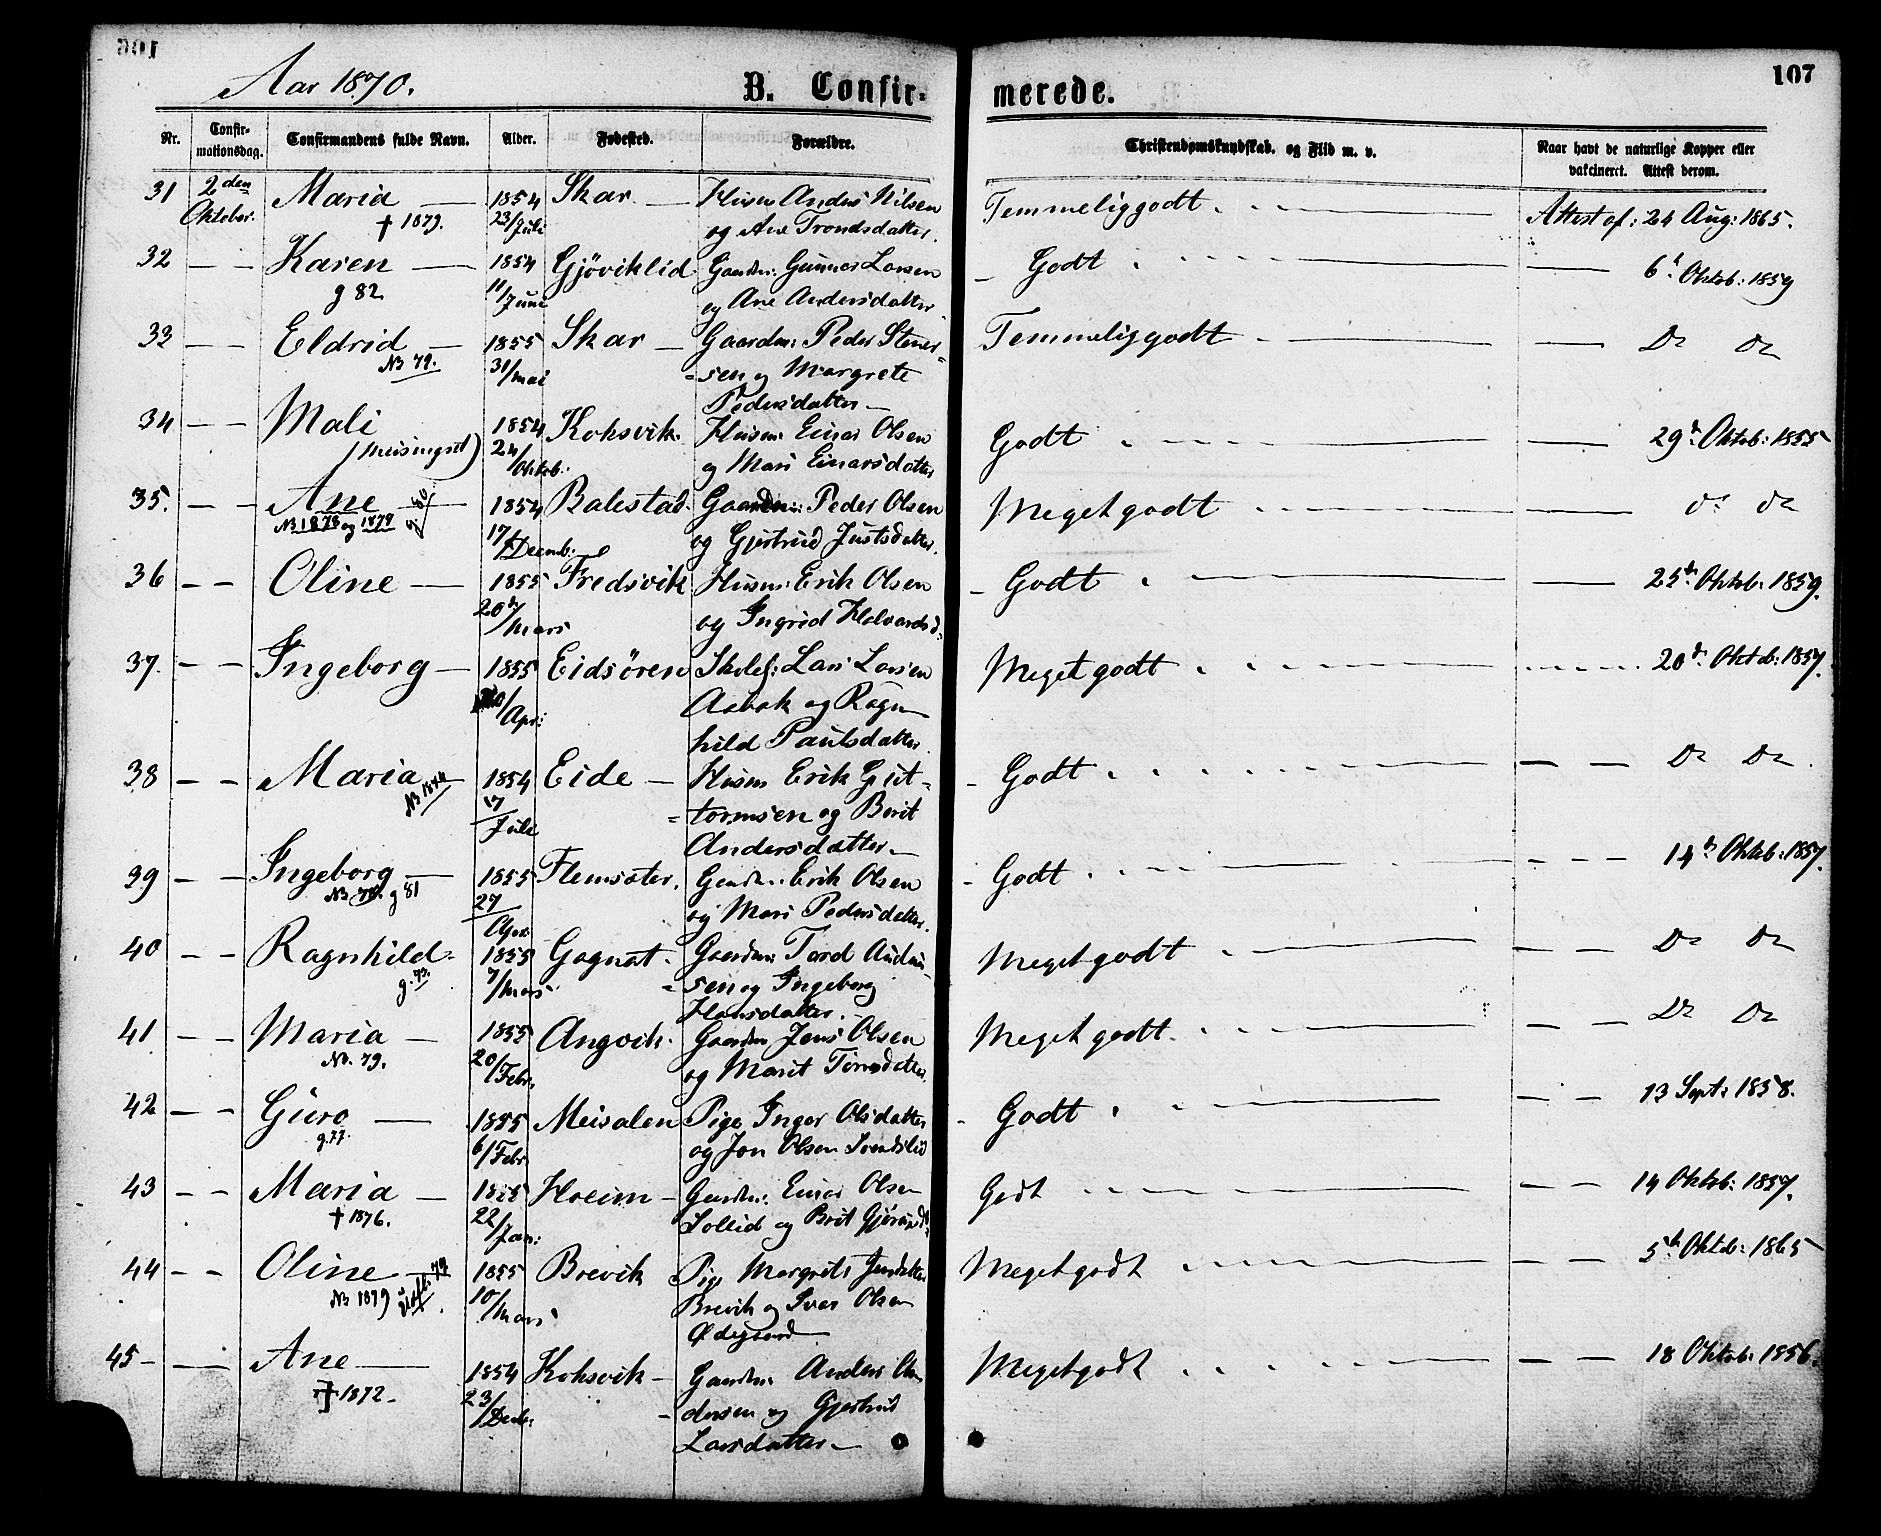 107
Aar 1870.
B. Confirmerede.
Nr. Confirmationsdag. Confirmandens fulde Navn. Alder. Fødested. Forældre. Christendomskundskab. og Flid m. v. Naar havt de naturlige Kopper eller vakcineret. Attest derom.
31 2den Oktober. Maria — 1854 Skar — Husm Anders Nilsen Temmeliggodt Attest af: 24 Aug: 1865.
† 1879. 23/Juli og Ane Trondsdatter.
32 — — Karen — 1854 Gjöviklid Gaardm: Gunnar Larsen Godt 6t Oktob: 1859
g 82 11/Juni og Ane Andersdatter
33 — — Eldrid — 1855 Skar — Gaardm: Peder Stener- Temmeliggodt Do Do
NB 79. 31/mai =sen og Margrete
Pedersdatter —
34 — — Mali 1854 Koksvik. Husm: Einar Olsen Godt 29d: Oktob: 1855
(Meisingset) 24/Oktob: og Mari Einarsdatter
35. — — Ane — 1854 Balestad. Gaardm: Peder Olsen Megetgodt do do
NB 1878 og 1879 g 80. 17/Decemb: og Gjertrud Justsdatter.
36 — — Oline — 1855 Fredsvik Husm: Erik Olsen Godt 25de Oktob: 1859.
20de/Mars og Ingrid Halvardsd:
37. — — Ingeborg — 1855 Eidsören Skolel: Lars Larsen Megetgodt 20d: Oktob: 1857.
/Apr: Aabak og Ragn-
hild Paulsdatter.
38 — — Maria — 1854 Eide — Husm Erik Gut- Godt Do Do
17/Juli =tormsen og Berit
Andersdatter —
39 — — Ingeborg — 1855 Flemsæter. Gaardm: Erik Olsen Godt 14de Oktob: 1857.
NB 78. g 81 27/Apr: og Mari Pedersdatter.
40 — — Ragnhild 1855 Gagnat. Gaardm: Tord Audun- Megetgodt Do Do
g. 73. 7/Mars =sen og Ingeborg
Hansdatter.
41 — — Maria — 1855 Angvik. Gaardm Jens Olsen Megetgodt. Do Do
Nb. 79. 20/Febr. og Marit datter.
42 — — Guro — 1855 Meisalen Pige Inger Olsdatter Godt 13 Sept: 1858.
g. 77. 6/Febr og Jon Olsen Svendslid
43 — — Maria — 1855 Hoeim — Gaardm: Einar Olsen Godt 14 Oktob: 1857.
† 1876. 22/Jan: Sollid og Brit
44 — — Oline — 1855 Brevik Pige Margrete Jensdatter Megetgodt 5te Oktob: 1865
NB 1879 10/Mars Brevik og Iver Olsen
Ødegaard —
45 — — — Ane — 1854 Koksvik — Gaardm: Anders An- Megetgodt 18 Oktob: 1856.
† 1872. 23/Decb: =dersen og Gjertrud
Larsdatter —